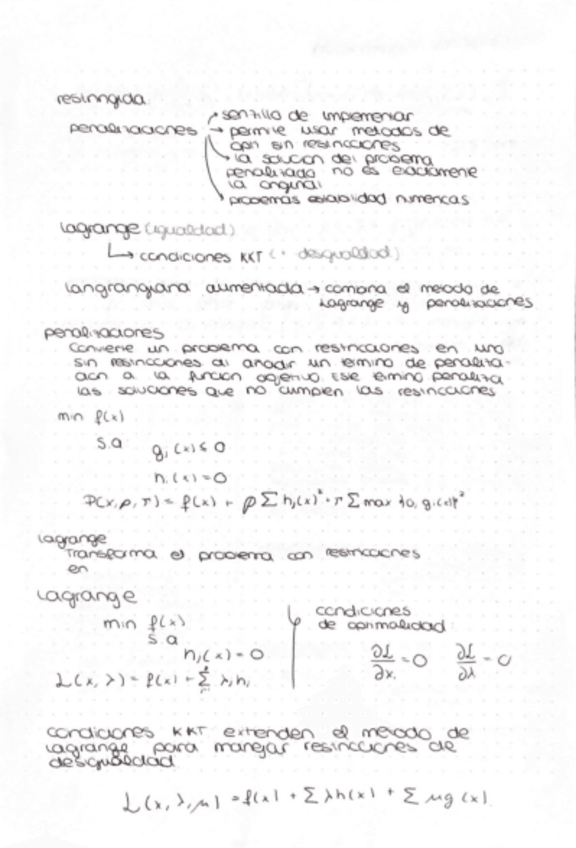 restringida
penalizaciones → sencillo de implementar
→ permite usar metodos de
opti sin restricciones
→ la solucion del problema
penalizado no es exactamente
la original
→ problemas estabilidad numericas
Lagrange (igualdad)
↳ condiciones KKT (+ desigualdad)
Langrangiana aumentada → combina el metodo de
Lagrange y penalizaciones
penalizaciones
Convierte un problema con restricciones en uno
sin restricciones al añadir un termino de penaliza-
cion a la funcion objetivo Este termino penaliza
las soluciones que no cumplen las restricciones
min f(x)
s.a
gᵢ(x) ≤ 0
hⱼ(x) = 0
P(x, ρ, r) = f(x) + ρ Σ hⱼ(x)² + r Σ max {0, gᵢ(x)}²
Lagrange
Transforma el problema con restricciones
en
Lagrange
min f(x)
s.a
hⱼ(x) = 0
L(x, λ) = f(x) + Σ λⱼhⱼ
condiciones
de optimalidad
∂L/∂xᵢ = 0 ∂L/∂λ = 0
condiciones KKT extenden el metodo de
Lagrange para manejar restricciones de
desigualdad
L(x, λ, μ) = f(x) + Σ λh(x) + Σ μg(x)